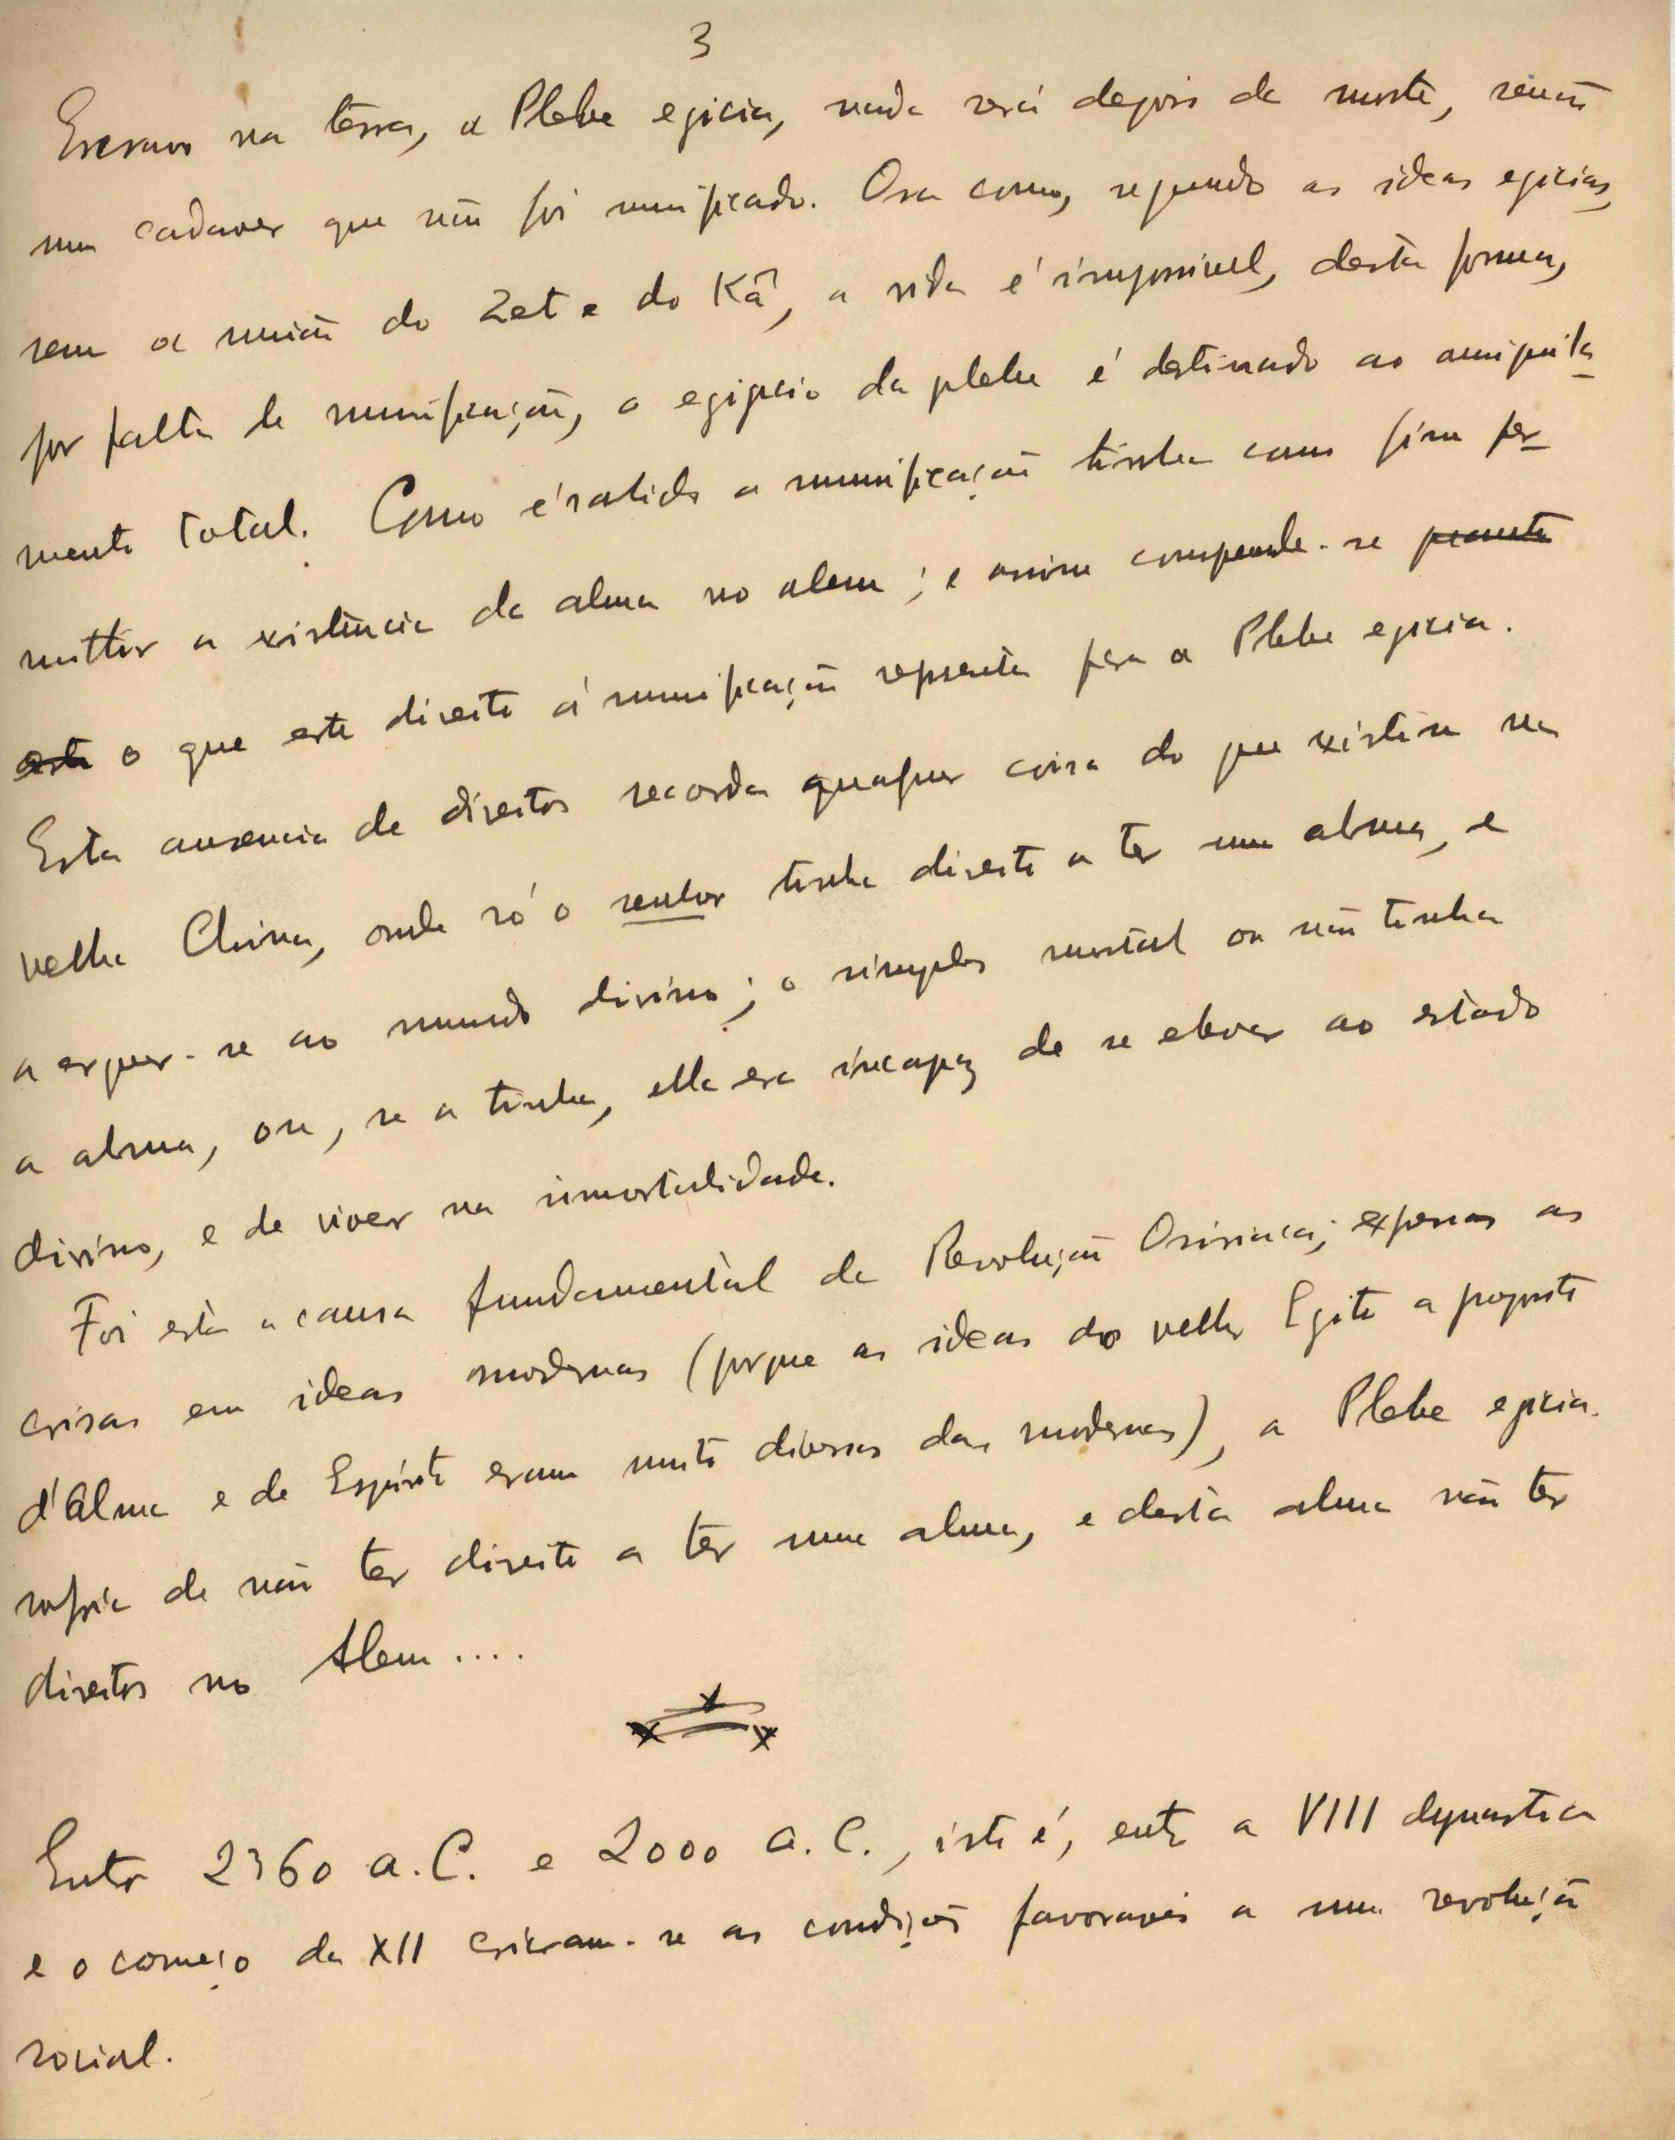 3
Escravo na terra, a Plebe egicia, nada será depois da morte, senão
um cadaver que não foi mumificado. Ora como, segundo as ideas egicias,
sem a união do Zet e do Kâ, a vida é impossivel, desta forma,
por falta de mumificação, o egipcio da plebe é destinado ao aniquila-
mento total. Como é sabido a mumificação tinha como fim per-
mittir a existência da alma no alem; e assim compreende-se
o que este direito á mumificação representa para a Plebe egicia.
Esta ausencia de direitos recorda qualquer coisa do que existira na
velha China, onde só o senhor tinha direito a ter uma alma, e
a erguer-se ao mundo divino; o simples mortal ou não tinha
a alma, ou, se a tinha, ella era incapaz de se elevar ao estado
divino, e de viver na immortalidade.
Foi esta a causa fundamental da Revolução Osiriaca; expressas as
coisas em ideas modernas (porque as ideas do velho Egito a proposito
d'Alma e de Espirito eram muito diversas das modernas), a Plebe egicia
sofria de não ter direito a ter uma alma, e desta alma não ter
direitos no Alem....
x
x x
Entre 2360 a.C. e 2000 a.C., isto é, entre a VIII dynastia
e o começo da XII criaram-se as condições favoraveis a uma revolução
social.